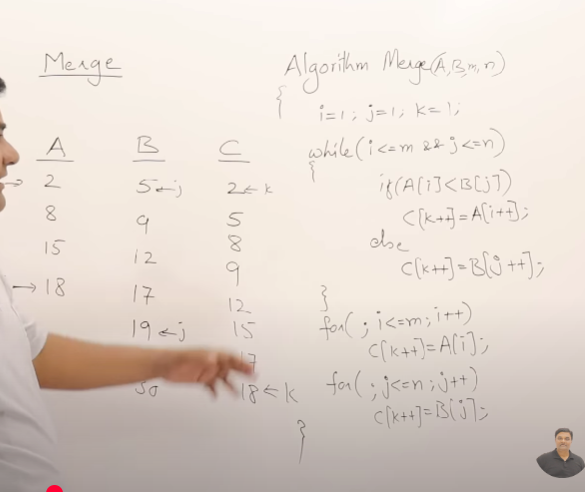 Merge
A B C
2 5←j 2←k
8 9 5
15 12 8
→18 17 9
19←j 12
15
18←k
Algorithm Merge(A,B,m,n)
{
i=1; j=1; k=1;
while(i<=m && j<=n)
{
if(A[i]<B[j])
C[k++]=A[i++];
else
C[k++]=B[j++];
}
for(; i<=m; i++)
C[k++]=A[i];
for(; j<=n; j++)
C[k++]=B[j];
}